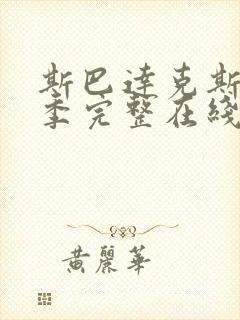 斯巴達克斯
季完整在綫
黃麗華